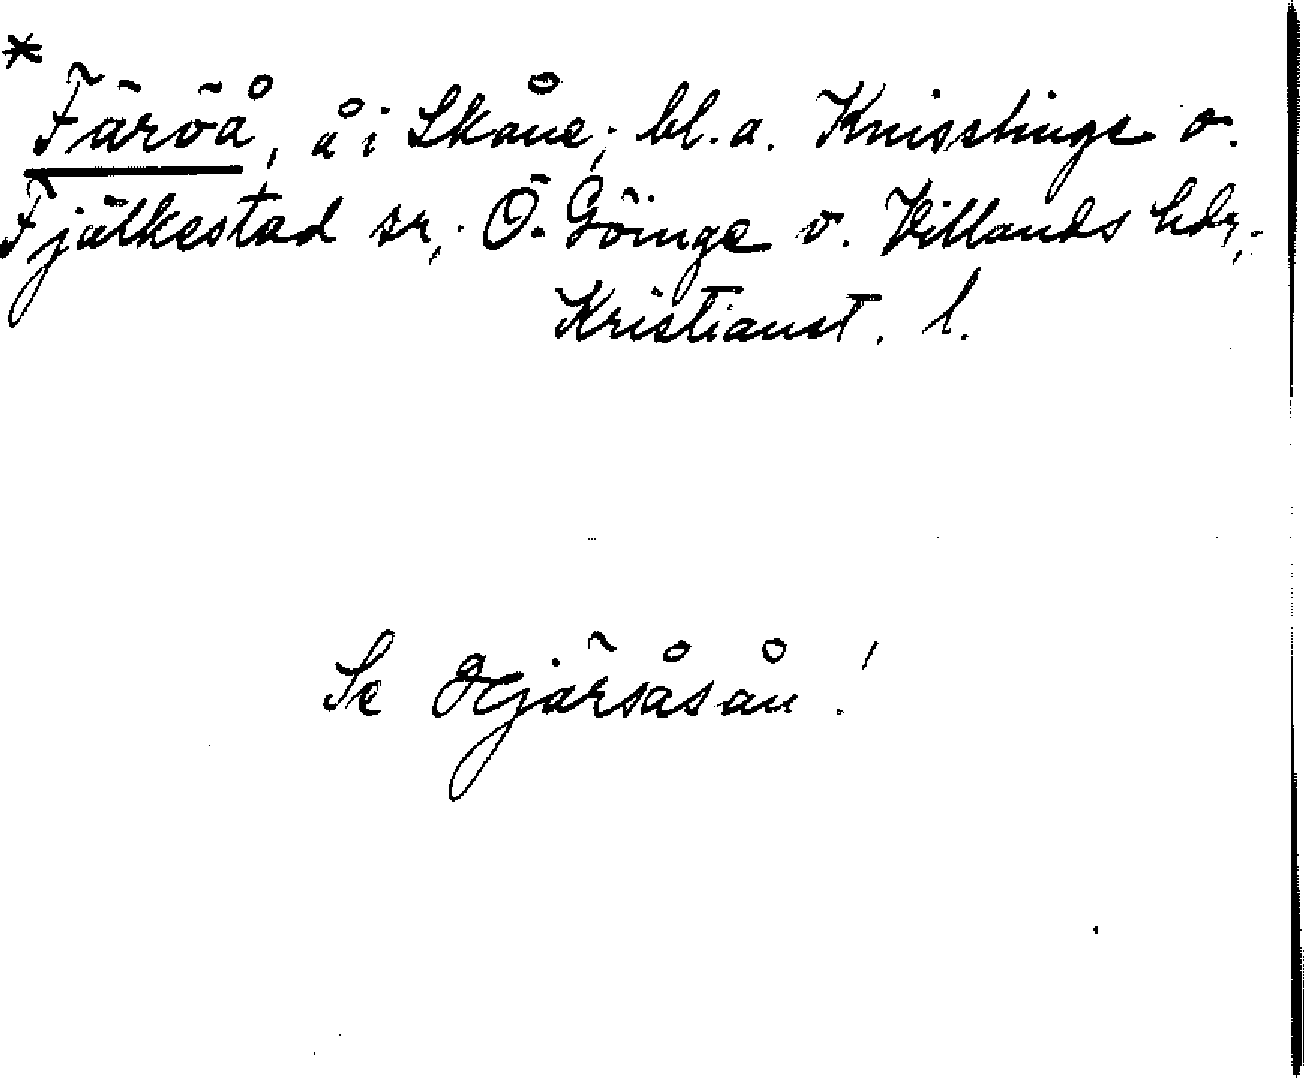 *
Färöå, å i Skåne; bl.a. Knisslinge o.
Fjälkestad sr; Ö. Göinge o. Villands hdr;
Kristianst. l.
Se Hjärsåsån!